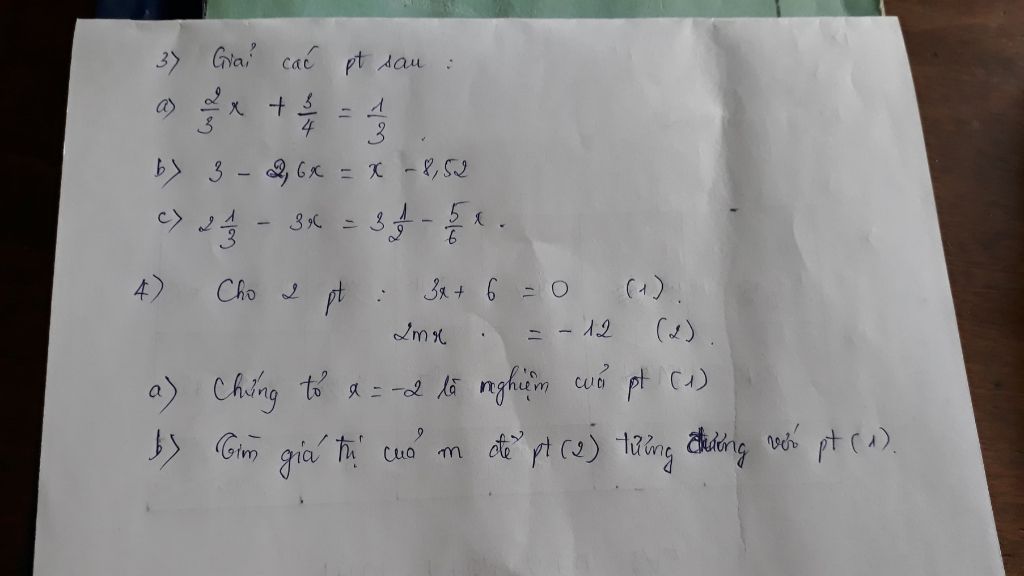 3) Giải các pt sau :
a) 2/3 x + 3/4 = 1/3
b) 3 - 2,6x = x - 8,52
c) 2 1/3 - 3x = 3 1/2 - 5/6 x .
4) Cho 2 pt : 3x + 6 = 0 (1).
2mx = -12 (2).
a) Chứng tỏ x = -2 là nghiệm của pt (1)
b) Tìm giá trị của m để pt (2) tương đương với pt (1).